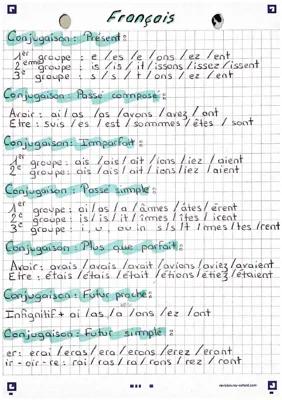 Français
Conjugaison : Présent :
1er groupe : e /es /e /ons /ez /ent
2eme groupe : is /is /it /issons /issez /issent
3e groupe : s /s /t /ons /ez /ent
Conjugaison : Passé composé :
Avoir : ai /as /as /avons /avez /ont
Etre : suis /es /est /sommes /êtes / sont
Conjugaison : Imparfait :
1er groupe : ais /ais /ait /ions /iez /aient
2e groupe : ais /ais /ait /ions /iez /aient
Conjugaison : Passé simple :
1er groupe : ai /as /a /âmes /âtes /èrent
2e groupe : is /is /it /îmes /îtes /irent
3e groupe : i, u, ou in s /s /t /mes /tes /rent
Conjugaison : Plus que parfait :
Avoir : avais /avais /avait /avions /aviez /avaient
Etre : étais /étais /était /étions /étiez /étaient
Conjugaison : Futur proche :
Infinitif + ai /as /a /ons /ez /ont
Conjugaison : Futur simple :
er : erai /eras /era /erons /erez /eront
ir - oir - re : rai /ras /ra /rons /rez / ront